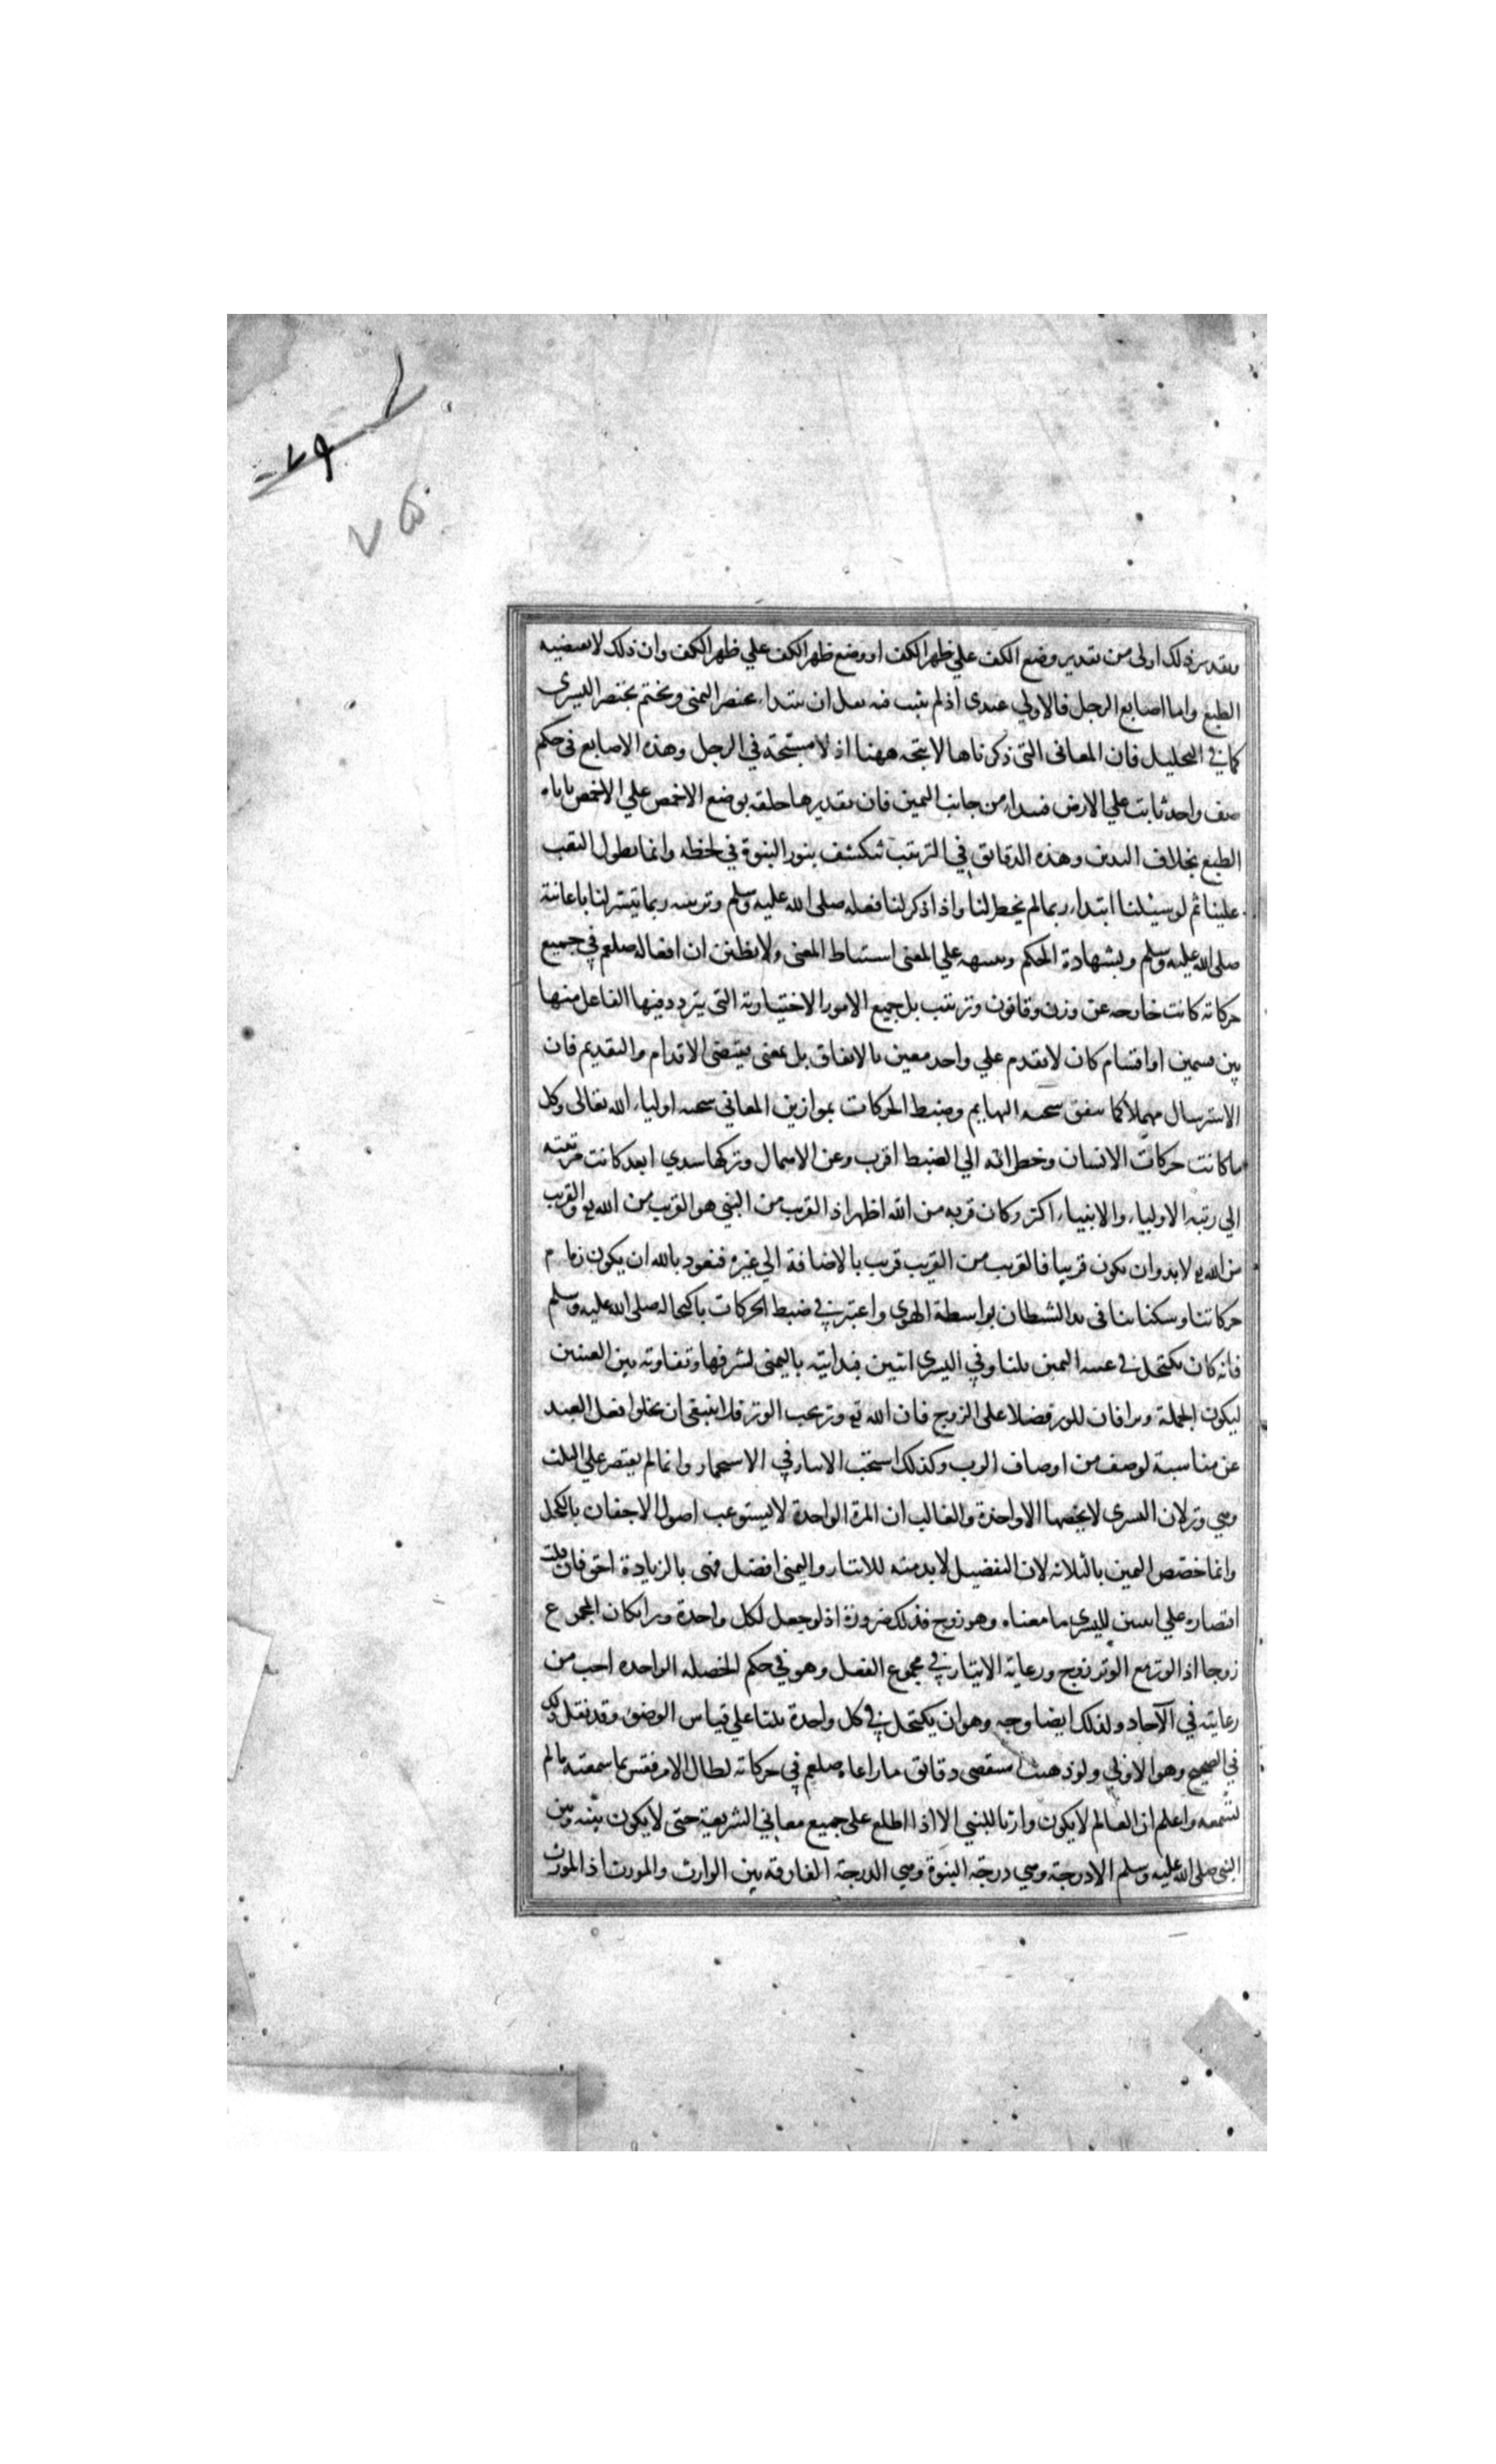 وتقدير ذلك اولى من تقدير وضع الكف علي ظهر الكف او وضع ظهر الكف علي ظهر الكف وان ذلك لا يقتضيه
الطبع واما اصابع الرجل فالاولي عندى اذ لم يثبت فيه نقل ان يبتداء بخنصر اليمنى ويختم بخنصر اليسرى
كما في التخليل فان المعانى التى ذكرناها لا يتجه ههنا اذ لا مسبحة في الرجل وهذه الاصابع فى حكم
صف واحد ثابت علي الارض فيبداء من جانب اليمين فان تقديرها حلقه بوضع الاخمص علي الاخمص ياباه
الطبع بخلاف اليدين وهذه الدقائق في الترتيب تنكشف بنور النبوة في لحظة وانما يطول التعب
علينا ثم لو سئلنا ابتداء ربما لم يخطر لنا واذا ذكر لنا فعله صلى الله عليه وسلم وترتيبه ربما تيسر لنا باعانته
صلى الله عليه وسلم وبشهادة الحكم وتنبيهه علي المعنى استنباط المعنى ولا يظنن ان افعاله صلعم في جميع
حركاته كانت خارجه عن وزن وقانون وترتيب بل جميع الامور الاختيارية التى يتردد فيها الفاعل منها
بين قسمين او اقسام كان لا يقدم علي واحد معين بالاتفاق بل بمعنى يقتضى الاقدام والتقديم فان
الاسترسال مهملا كما يتفق سجية البهايم وضبط الحركات بموازين المعاني سجية اولياء الله تعالى وكل
ما كانت حركات الانسان وخطراته الي الضبط اقرب وعن الاهمال وتركها سدي ابعد كانت مرتبته
الي رتبة الاولياء والانبياء اكثر وكان قربه من الله اظهر اذ القريب من النبي هو القريب من الله تع والقريب
من الله تع لا بد وان يكون قريبا فالقريب من القريب قريب بالاضافة الي غيره فنعوذ بالله ان يكون زمام
حركاتنا وسكناتنا فى يد الشيطان بواسطة الهوي واعتبر في ضبط الحركات باكتحاله صلى الله عليه وسلم
فانه كان يكتحل في عينه اليمين ثلثا وفي اليسرى اثنين فبدايته باليمنى لشرفها وتفاوته بين العينين
ليكون الجملة وترا فان للوتر فضلا على الزوج فان الله تع وتر يحب الوتر فلا ينبغى ان يخلوا فعل العبد
عن مناسبة لوصف من اوصاف الرب وكذلك استحب الايتار في الاستجمار وانما لم يقتصر علي الثلث
وهي وتر لان اليسرى لا يخصها الا واحدة والغالب ان المرة الواحدة لا يستوعب اصول الاجفان بالكحل
وانما خصص اليمين بالثلاثه لان التفضيل لا بد منه للايتار واليمنى افضل فهى بالزيادة احق فان قلت
اقتصاره علي اثنين لليسرى ما معناه وهو زوج فذلك ضرورة اذ لو جعل لكل واحدة وترا كان المجموع
زوجا اذ الوتر مع الوتر زوج ورعاية الايتار في مجموع الفعل وهو في حكم الخصلة الواحدة احب من
رعايته في الآحاد ولذلك ايضا وجه وهو ان يكتحل في كل واحدة ثلثا علي قياس الوضوء وقد نقل ذلك
في الصحيح وهو الاولي ولو ذهبت استقصى دقائق ما راعاه صلعم في حركاته لطال الامر فقس بما سمعته ما لم
تسمعه واعلم ان العالم لا يكون وارثا للنبي الا اذا اطلع على جميع معاني الشريعة حتى لا يكون بينه وبين
النبى صلى الله عليه وسلم الا درجة وهي درجة النبوة وهي الدرجة الفارقة بين الوارث والمورث اذ المورث